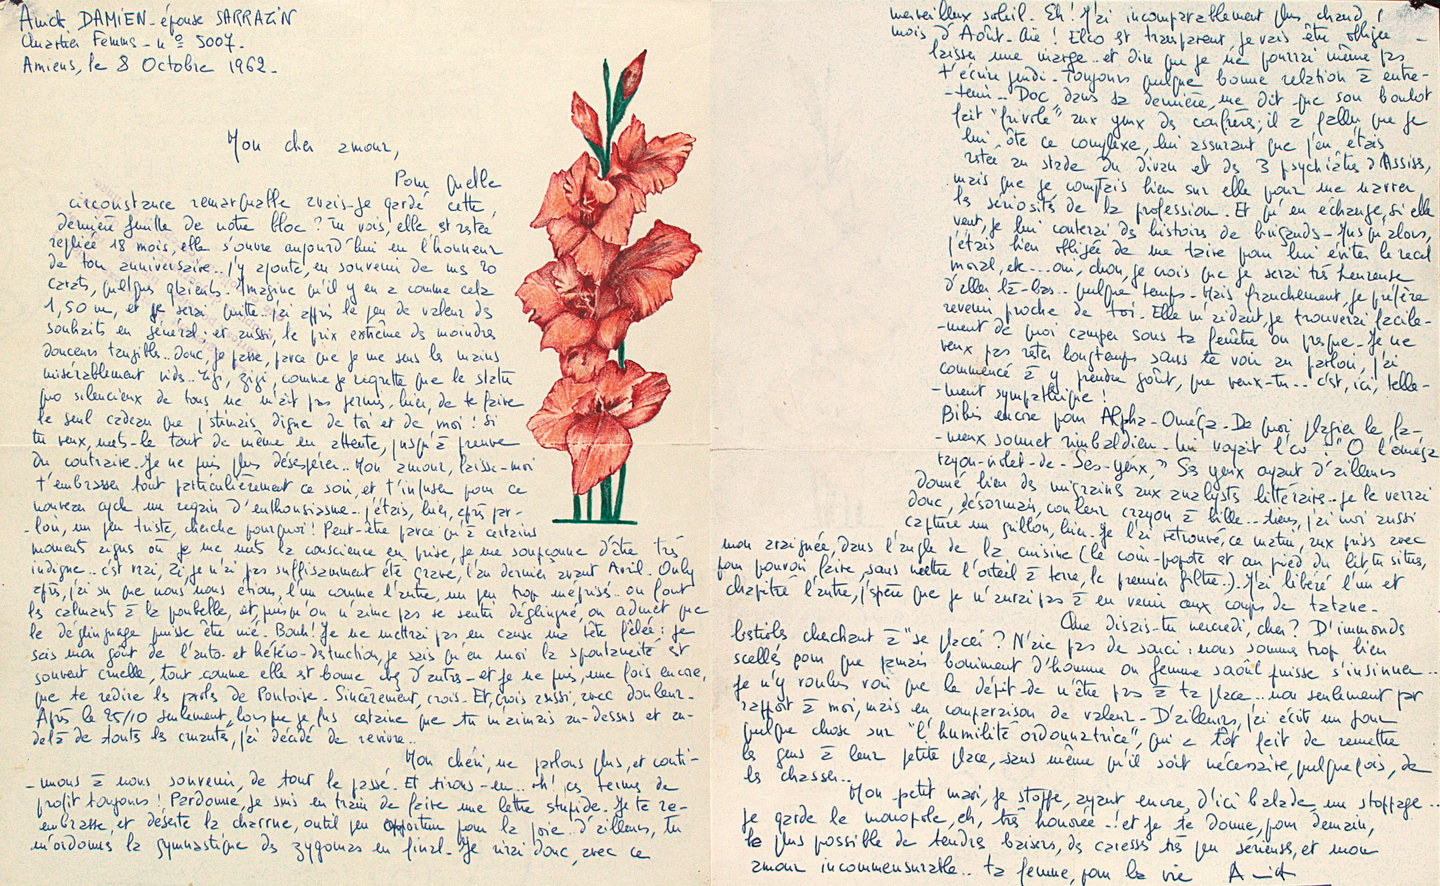 Anick DAMIEN - épouse SARRAZIN
Quartier Femmes - nº 5007.
Amiens, le 8 Octobre 1962.
Mon cher amour,
Pour quelle
circonstance remarquable avais-je gardé cette
dernière feuille de notre bloc ? Tu vois, elle est restée
repliée 18 mois, elle s'ouvre aujourd'hui en l'honneur
de ton anniversaire.. J'y ajoute, en souvenir de mes 20
carats, quelques glaïeuls. Imagine qu'il y en a comme cela
1,50 m, et je serai quitte. J'ai appris le peu de valeur des
souhaits en général. et aussi le prix extrême des moindres
douceurs tangibles.. Donc, je passe, parce que je me sens les mains
misérablement vides.. Zizi, Zizi, comme je regrette que le statu
quo silencieux de tous ne m'ait pas permis, hier, de te faire
le seul cadeau que j'estimais digne de toi et de moi ! Si
tu veux, mets-le tout de même en attente, jusqu'à preuve
du contraire. Je ne puis plus désespérer.. Mon amour, laisse-moi
t'embrasser tout particulièrement ce soir, et t'infuser pour ce
nouveau cycle un regain d'enthousiasme. J'étais, hier, après par-
-loir, un peu triste, cherche pourquoi ! Peut-être parce qu'à certains
moments aigus où je me mets la conscience en prise, je me soupçonne d'être très
indigne.. c'est vrai, Zi, je n'ai pas suffisamment été grave, l'an dernier avant Avril. Only
après, j'ai su que nous nous étions, l'un comme l'autre, un peu trop méprisés.. on fout
les calmants à la poubelle, et, puisqu'on n'aime pas se sentir déglingué, on admet que
le déglinguage puisse être nié. Bouh ! Je ne mettrai pas en cause ma tête fêlée : je
sais mon goût de l'auto- et hétéro-destruction, je sais qu'en moi la spontanéité est
souvent cruelle, tout comme elle est bonne chez d'autres - et je ne puis, une fois encore,
que te redire les paroles de Pontoise. Sincèrement, crois. Et, crois aussi, avec douleur.
Après le 25/10 seulement, lorsque je fus certaine que tu m'aimais au-dessus et au-
delà de toutes les cruautés, j'ai décidé de revivre..
Mon chéri, ne parlons plus, et conti-
-nuons à nous souvenir, de tout le passé. Et tirons-en.. oh ! ces termes de
profit toujours ! Pardonne, je suis en train de faire une lettre stupide. Je te re-
embrasse, et déserte la charrue, outil peu opportun pour la joie.. d'ailleurs, tu
m'ordonnes la gymnastique des zygomas en final. J'irai donc, avec ce
merveilleux soleil. Eh ! J'ai incomparablement plus chaud,
mois d'Août. Aïe ! Elco est transparent, je vais être obligée
laisser une marge.. et dire que je ne pourrai même pas
t'écrire jeudi. Toujours quelque bonne relation à entre-
-tenir.. Doc, dans sa dernière, me dit que son boulot
fait "frivole" aux yeux des confrères; il a fallu que je
lui ôte ce complexe, lui assurant que j'en étais
restée au stade du divan et des 3 psychiâtres d'Assises,
mais que je comptais bien sur elle pour me narrer
les sériosités de la profession. Et qu'en échange, si elle
veut, je lui conterai des histoires de brigands. Jusqu'alors,
j'étais bien obligée de me taire pour lui éviter le recel
moral, etc.... oui, chou, je crois que je serai très heureuse
d'aller là-bas.. quelque temps. Mais franchement, je préfère
revenir proche de toi. Elle m'aidant, je trouverai facile-
-ment de quoi camper sous ta fenêtre ou presque. Je ne
veux pas rester longtemps sans te voir au parloir, j'ai
commencé à y prendre goût, que veux-tu.. c'est, ici, telle-
-ment sympathique !
Bibis encore pour Alpha-Oméga. De quoi plagier le fa-
-meux sonnet rimbaldien. Lui voyait l'o : "O l'oméga
rayon-violet-de-Ses-yeux," Ses yeux ayant d'ailleurs
donné bien des migraines aux analystes littéraires.. Je le verrai
donc, désormais, couleur crayon à bille... tiens, j'ai moi aussi
capturé un grillon, hier. Je l'ai retrouvé, ce matin, aux prises avec
mon araignée, dans l'angle de la cuisine (le coin-popote est au pied du lit, tu situes,
pour pouvoir faire, sans mettre l'orteil à terre, le premier filtre..). J'ai libéré l'un et
chapitré l'autre, j'espère que je n'aurai pas à en venir aux coups de tatane.
Que disais-tu mercredi, cher ? D'immondes
bestioles cherchant à "se placer" ? N'aie pas de souci : nous sommes trop bien
scellés pour que jamais boniment d'homme ou femme saoûl puisse s'insinuer..
Je n'y voulus voir que le dépit de n'être pas à ta place.. non seulement par
rapport à moi, mais en comparaison de valeur. D'ailleurs, j'ai écrit un jour
quelque chose sur "l'humilité ordonnatrice", qui a tôt fait de remettre
les gens à leur petite place, sans même qu'il soit nécessaire, quelquefois, de
les chasser..
Mon petit mari, je stoppe, ayant encore, d'ici balade, un stoppage..
je garde le monopole, eh, très honorée..! et je te donne, pour demain,
le plus possible de tendres baisers, de caresses très peu sérieuses, et mon
amour incommensurable.. ta femme, pour la vie Anick